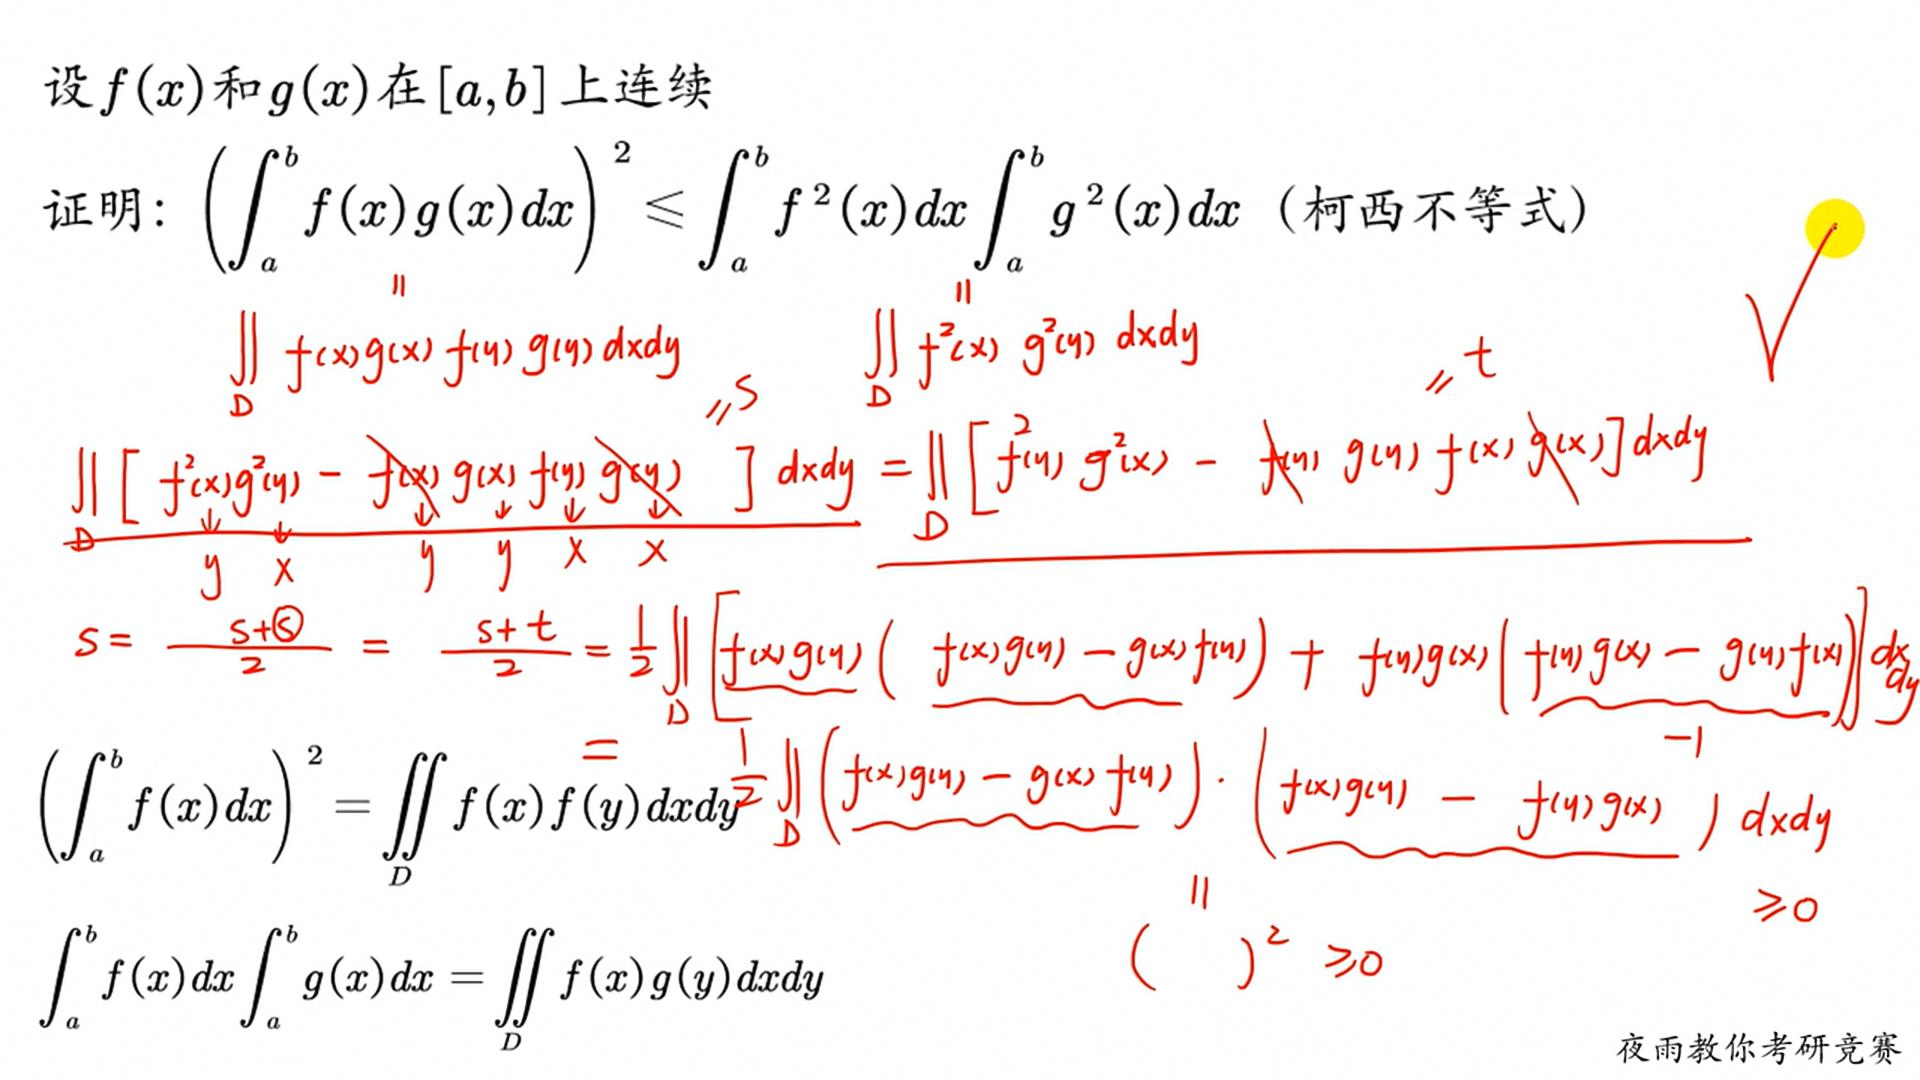 设f(x)和g(x)在[a,b]上连续
证明: (∫_a^b f(x)g(x)dx)^2 ⩽ ∫_a^b f^2(x)dx ∫_a^b g^2(x)dx (柯西不等式)
= =
∬_D f(x)g(x)f(y)g(y)dxdy ∬_D f^2(x)g^2(y)dxdy
= s = t
∬_D [f^2(x)g^2(y) - f(x)g(x)f(y)g(y)]dxdy = ∬_D [f^2(y)g^2(x) - f(y)g(y)f(x)g(x)]dxdy
↓ ↓ ↓ ↓ ↓ ↓
y x y y x x
s = (s+s)/2 = (s+t)/2 = 1/2 ∬_D [f(x)g(y)(f(x)g(y) - g(x)f(y)) + f(y)g(x)(f(y)g(x) - g(y)f(x))]dxdy
-1
= 1/2 ∬_D (f(x)g(y) - g(x)f(y))·(f(x)g(y) - f(y)g(x))dxdy
⩾0
=
( )^2 ⩾0
(∫_a^b f(x)dx)^2 = ∬_D f(x)f(y)dxdy
∫_a^b f(x)dx ∫_a^b g(x)dx = ∬_D f(x)g(y)dxdy
夜雨教你考研竞赛